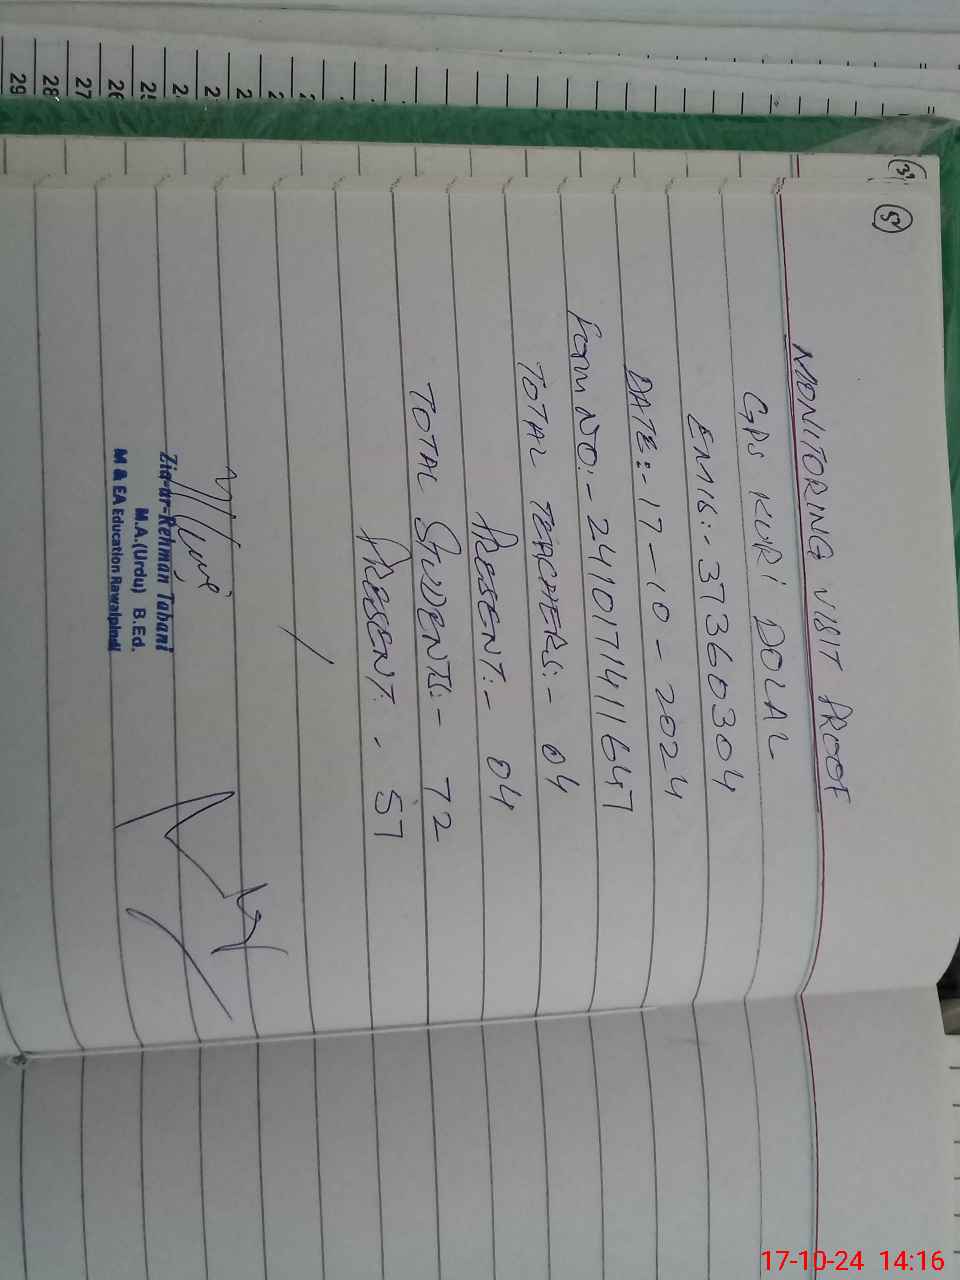 29
28
27
26
25
39
52
MONITORING VISIT PROOF
GPS KURI DOLAL
EMIS:- 37360304
DATE:- 17-10-2024
Form NO:- 241017141647
TOTAL TEACHERS:- 04
PRESENT:- 04
TOTAL STUDENTS:- 72
PRESENT:- 57
Zia-ur-Rehman Tabani
M.A.(Urdu) B.Ed.
M & EA Education Rawalpindi
17-10-24 14:16